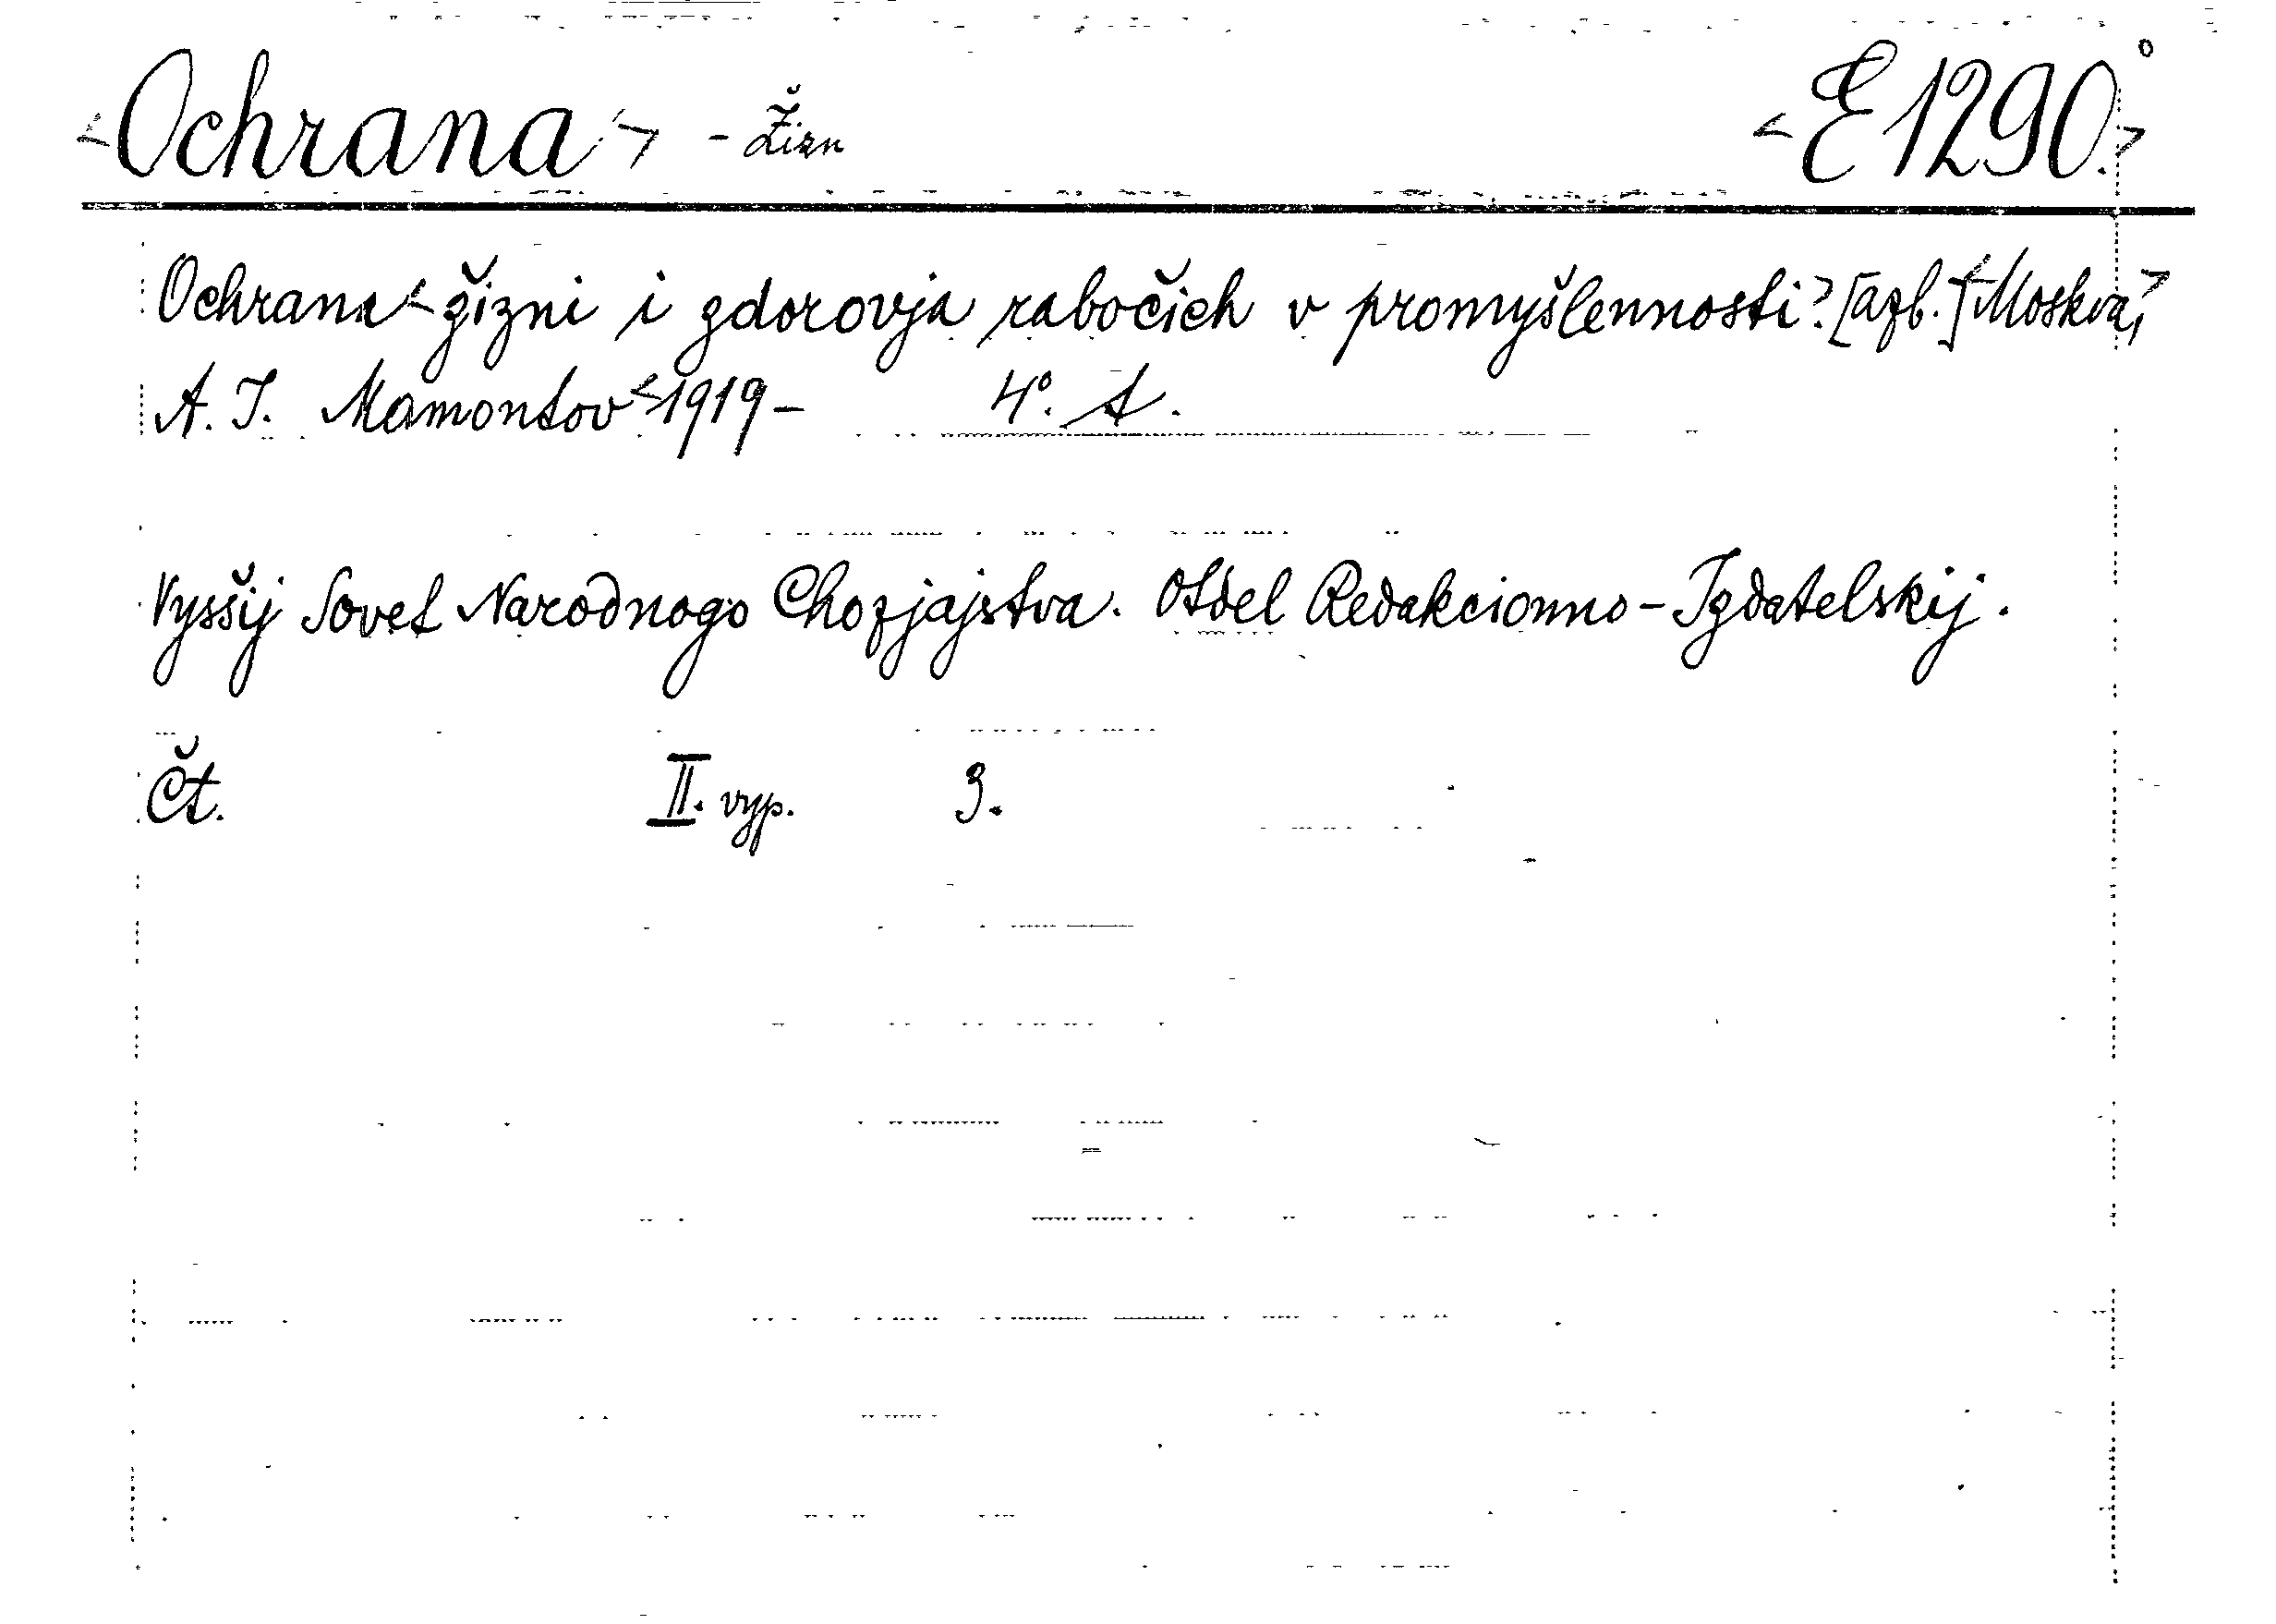 <Ochrana> - Žizn <E 1290.>°
Ochrana <žizni i zdorovja rabočich v promyšlennosti> [azb.] <Moskva,>
A. I. Mamontov <1919- 4°. A.
Vysšij Sovet Narodnogo Chozjajstva. Otdel Redakcionno-Izdatelskij.
Čt. II. vyp. 3.